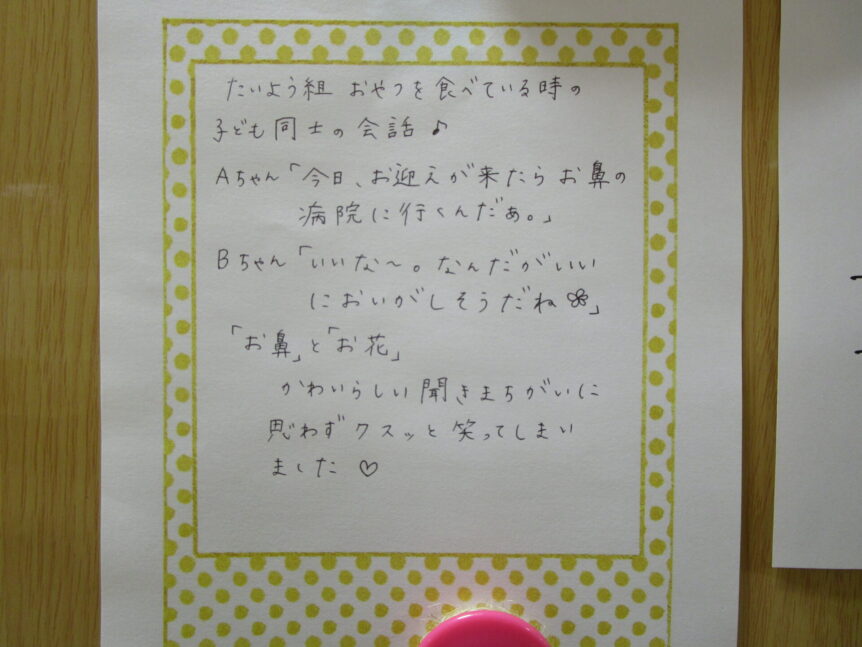 たいよう組 おやつを食べている時の
子ども同士の会話♪
Aちゃん「今日、お迎えが来たらお鼻の
病院に行くんだぁ。」
Bちゃん「いいな～。なんだがいい
においがしそうだね」
「お鼻」と「お花」
かわいらしい聞きまちがいに
思わずクスッと笑ってしまい
ました♡